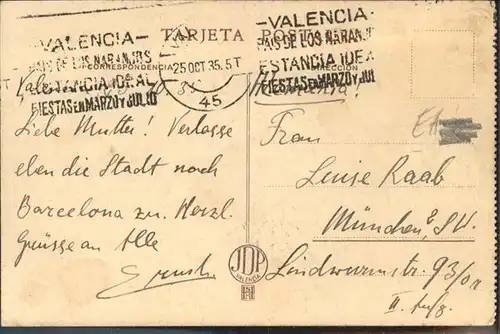 VALENCIA
PAIS DE LOS NARANJOS
ESTANCIA IDEAL
FIESTAS EN MARZO Y JULIO
TARJETA POSTAL
CORRESPONDENCIA
25 OCT 35. 5T
45
VALENCIA
PAIS DE LOS NARANJ
ESTANCIA IDEA
FIESTAS EN MARZO Y JUL
DIRECCION
Liebe Mutter! Verlasse
eben die Stadt nach
Barcelona zu. Herzl.
Grüsse an Alle
Ernst
Alemania!
Frau
Luise Raab
München
Lindwurmstr. 93/0
II. Aufg.
JDP
VALENCIA